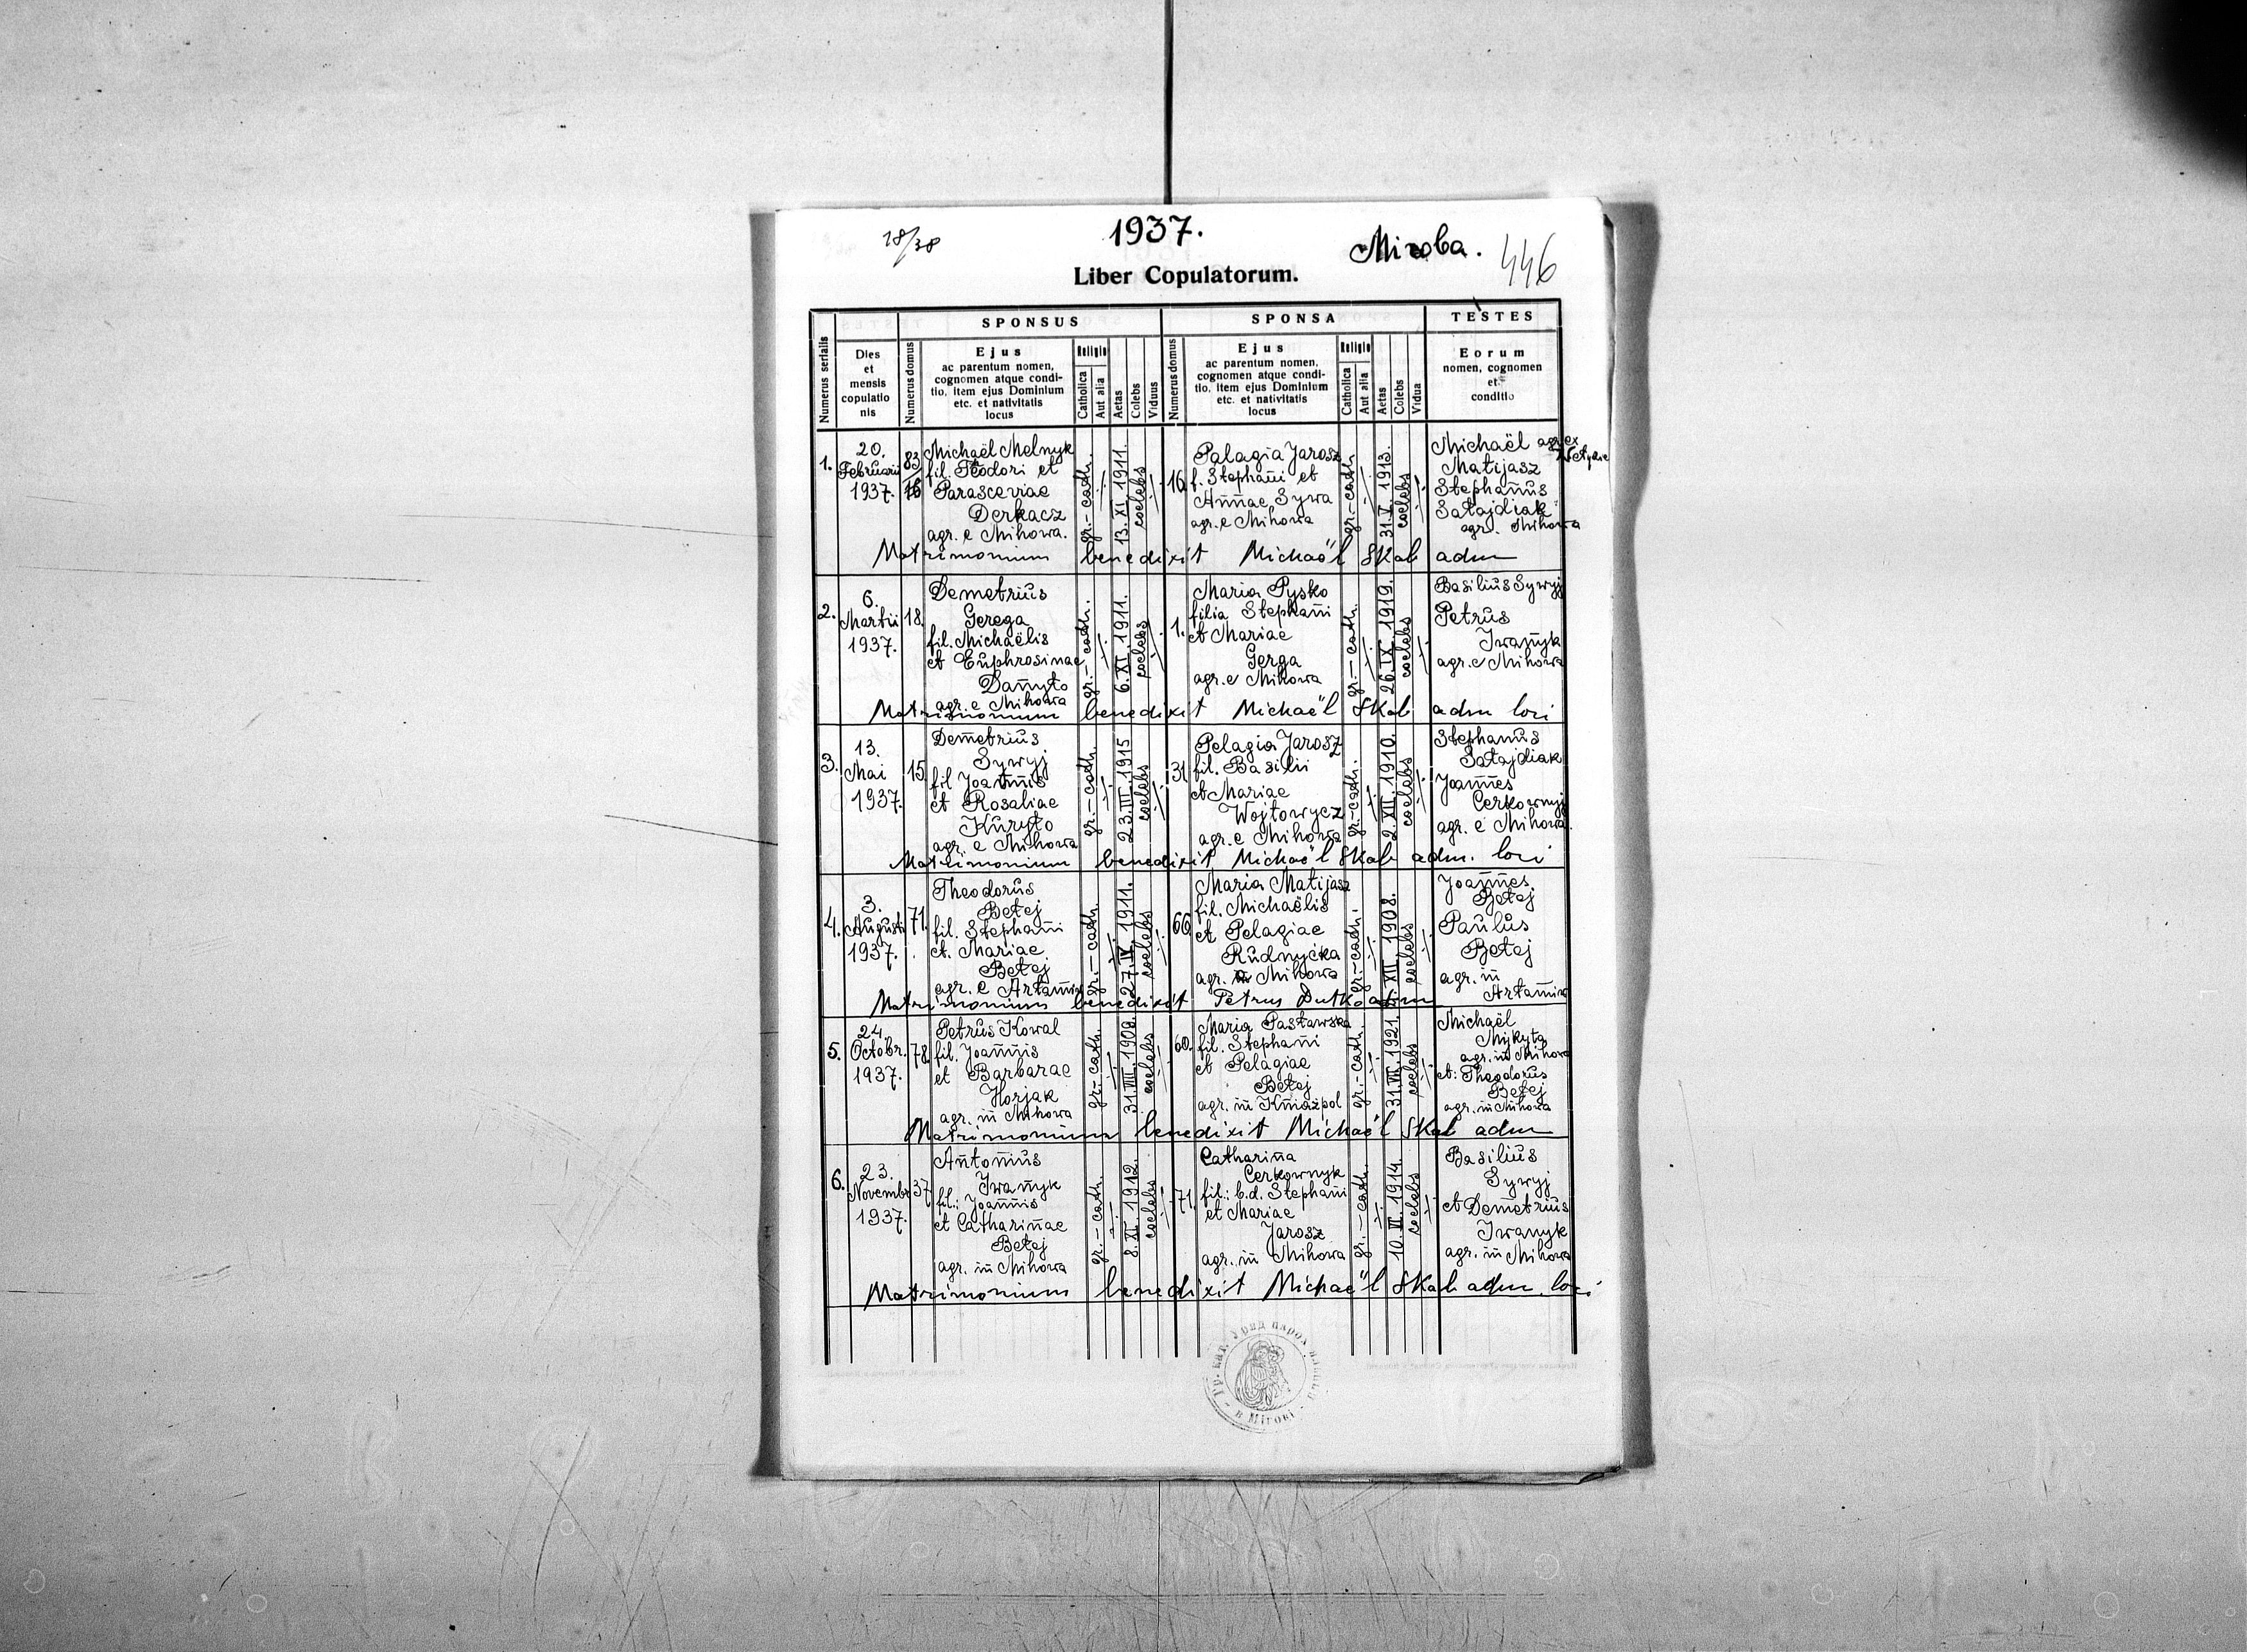 18/38
1937.
Miгова.
446
Liber Copulatorum.
Numerus serialis
Dies
et
mensis
copulatio
nis
SPONSUS
Numerus domus
Ejus
ac parentum nomen,
cognomen atque condi-
tio, item ejus Dominium
etc. et nativitatis
locus
Religio
Catholica
Aut alia
Aetas
Colebs
Viduus
SPONSA
Numerus domus
Ejus
ac parentum nomen,
cognomen atque condi-
tio, item ejus Dominium
etc. et nativitatis
locus
Religio
Catholica
Aut alia
Aetas
Colebs
Vidua
TESTES
Eorum
nomen, cognomen
et
conditio
1.
20.
Februarii
1937.
83/16
Michaël Melnyk
fil. Teodori et
Parasceviae
Derkacz
agr. e Mihowa.
gr.-cath.
13. XI. 1911.
coelebs
16
Palagia Jarosz
f. Stephani et
Annae Sywa
agr. e Mihowa
gr-cath
31. V. 1913.
coelebs
Michaël agr. ex
Matijasz
Stephanus
Sałajdiak
agr. Mihowa
Matrimonium benedixit Michaël Skab adm
2.
6.
Martii
1937.
18.
Demetrius
Gerega
fil. Michaëlis
et Euphrosinae
Danyło
agr. e Mihowa
gr.-cath.
6. XI. 1911.
coelebs
1.
Maria Pysko
filia Stephani
et Mariae
Gerga
agr. e Mihowa
gr.-cath.
26. IX. 1919.
coelebs
Basilius Sywyj
Petrus
Iwanyk
agr. e Mihowa
Matrimonium benedixit Michaël Skab adm loci
3.
13.
Mai
1937.
15.
Demetrius
Sywyj
fil Joannis
et Rosaliae
Kuryło
agr. e Mihowa
gr.-cath.
23. III. 1915
coelebs
31
Pelagia Jarosz
fil. Basilii
et Mariae
Wojtowycz
agr. e Mihowa
gr-cath.
2. XII. 1910.
coelebs
Stephanus
Sałajdiak
Joannes
Cerkownyj
agr. e Mihowa.
Matrimonium benedixit Michaël Skab adm. loci
4.
3.
Augusti
1937.
71.
Theodorus
Betej
fil. Stephani
et. Mariae
Betej
agr. e Artamiw
gr.-cath.
27. IV. 1911.
coelebs
66
Maria Matijasz
fil. Michaëlis
et Pelagiae
Rudnyćka
agr. Mihowa
gr-cath.
XII. 1908.
coelebs
Joannes.
Betej
Paulus
Betej
agr. in
Artamiw
Matrimonium benedixit Petrus Dutko adm
5.
24.
Octobr.
1937.
78.
Petrus Kowal
fil. Joannis
et Barbarae
Horjak
agr. in Mihowa
gr.-cath.
31. VIII. 1909.
coelebs
60.
Maria Pasławska
fil. Stephani
et Pelagiae
Betej
agr. in Kniażpol
gr.-cath.
31. VII. 1921.
coelebs
Michaël
Mykyta
agr. in Mihowa
et: Theodorus
Betej
agr. in Mihowa
Matrimonium benedixit Michaël Skab adm
6.
23.
Novembr
1937.
37
Antonius
Iwanyk
fil.: Joannis
et Catharinae
Betej
agr. in Mihowa
gr.-cath.
8. XI. 1912.
coelebs
71.
Catharina
Cerkownyk
fil.: b.d. Stephani
et Mariae
Jarosz
agr. in Mihowa
gr.-cath.
10. VI. 1914.
coelebs
Basilius
Sywyj
et Demetrius
Iwanyk
agr. in Mihowa
Matrimonium benedixit Michaël Skab adm. loci
Гр. кат. Уряд парох.
в Мігові